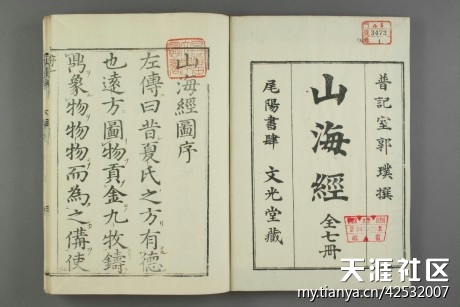 晉記室郭璞撰
山海經 全七冊
尾陽書肆 文光堂藏
3472
1
山海經圖序
左傳曰昔夏氏之方有德
也遠方圖物貢金九牧鑄
鼎象物物物而為之備使
天涯社区
mytianya.cn/42532007